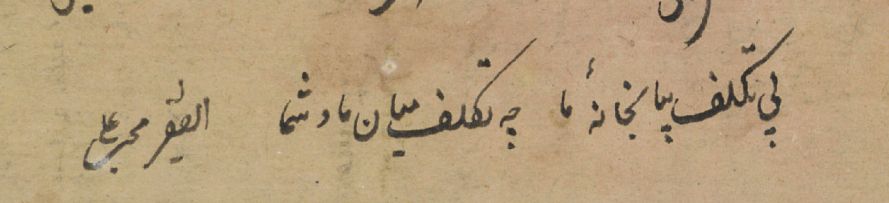 بی تکلف بیا بخانهٔ ما چه تکلف میان ما و شما الفقیر محمد علی